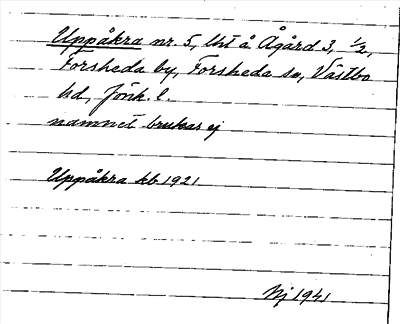 Uppåkra nr. 5, lht å Ågård 3, 1/2,
Forsheda by, Forsheda sn, Västbo
hd, Jönk. l.
namnet brukas ej
Uppåkra kb 1921
Nj 1941